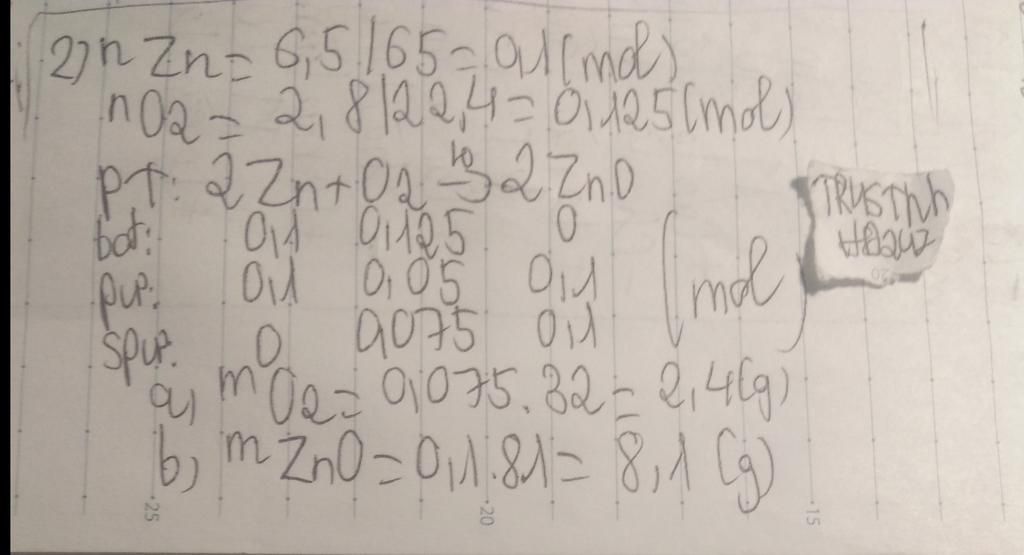 2) n Zn = 6,5 / 65 = 0,1 (mol)
nO2 = 2,8 / 22,4 = 0,125 (mol)
pT: 2 Zn + O2 → 2 ZnO
bđ: 0,1 0,125 0
pư: 0,1 0,05 0,1 (mol)
spư: 0 0,075 0,1
a, m O2 = 0,075 . 32 = 2,4 (g)
b, m ZnO = 0,1 . 81 = 8,1 (g)
25 20 15